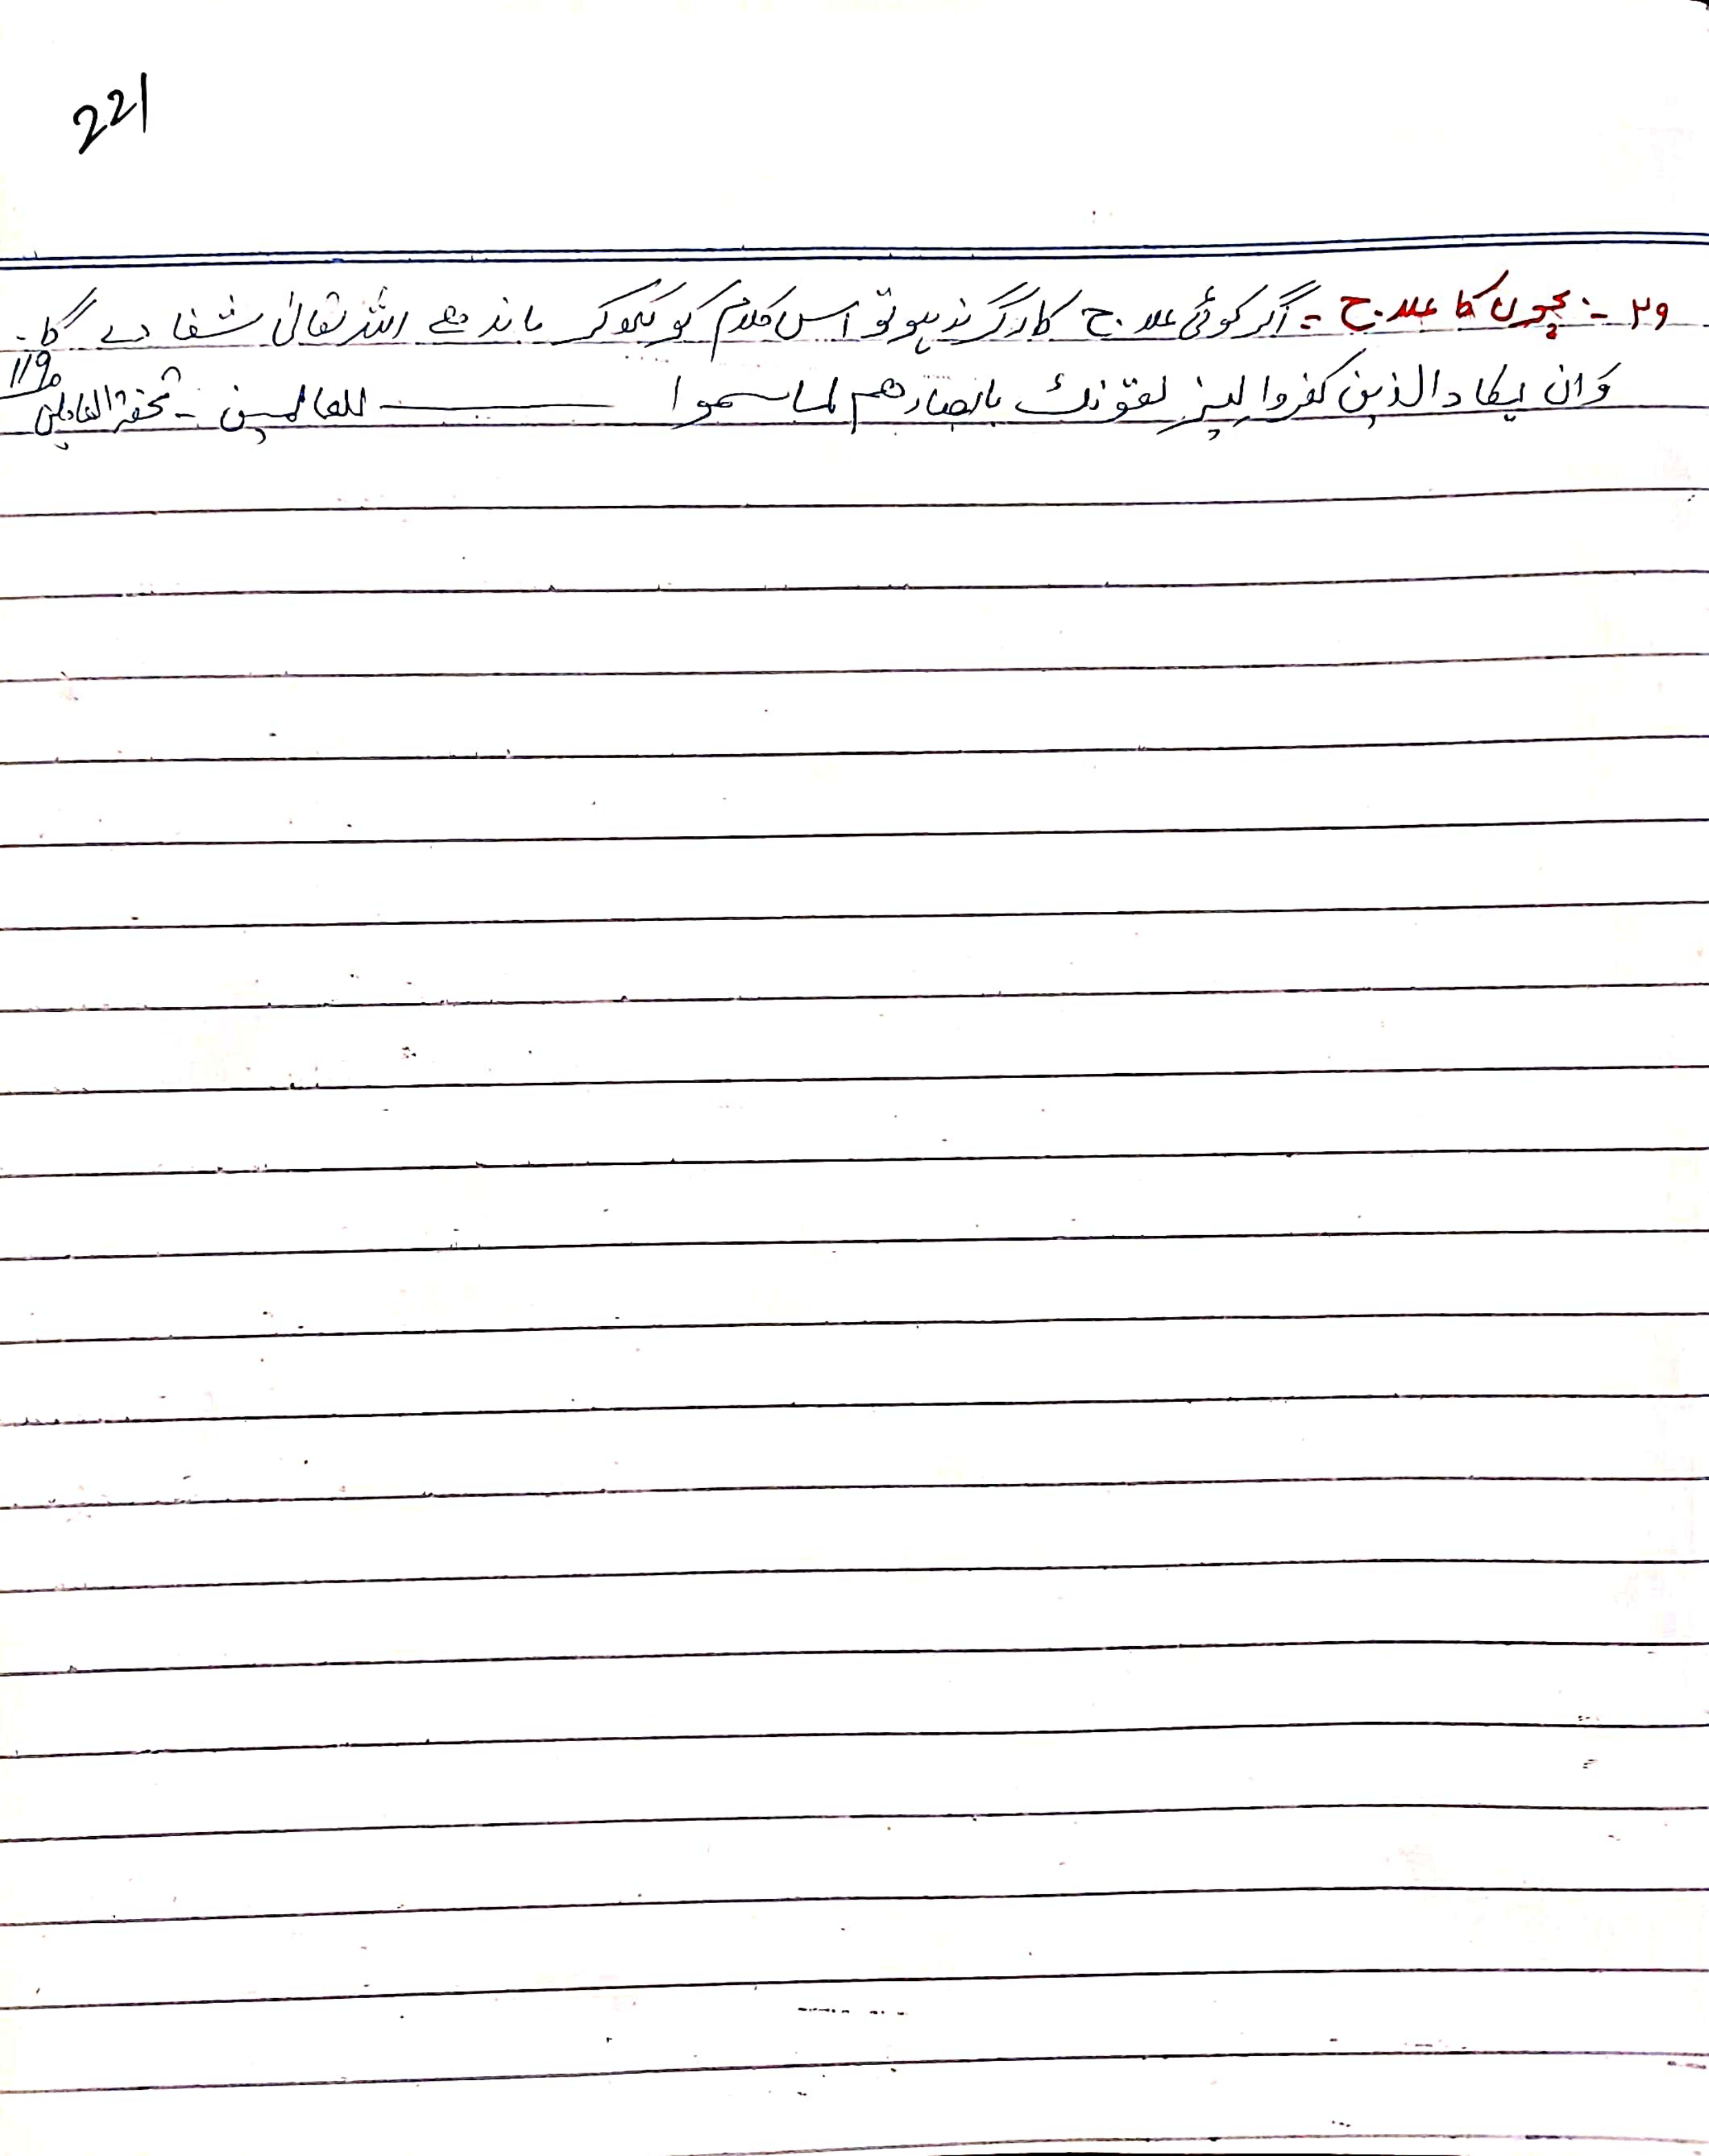 221
۲۹ - بچوں کا علاج - اگر کوئی علاج کارگر نہ ہو تو اس کلام کو لکھ کر باندھے اللہ تعالیٰ شفا دے گا۔
وَان یکاد الذین کفروا لیزلقونک بابصارهم لما سمعوا ـــــــ للعالمین - تحفۃ العاملین
119